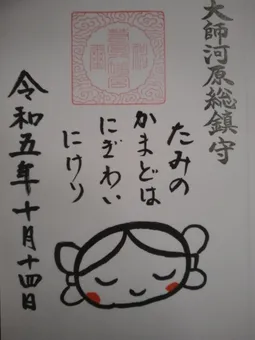 大師河原総鎮守
たみの
かまどは
にぎわい
にけり
令和五年十月十四日